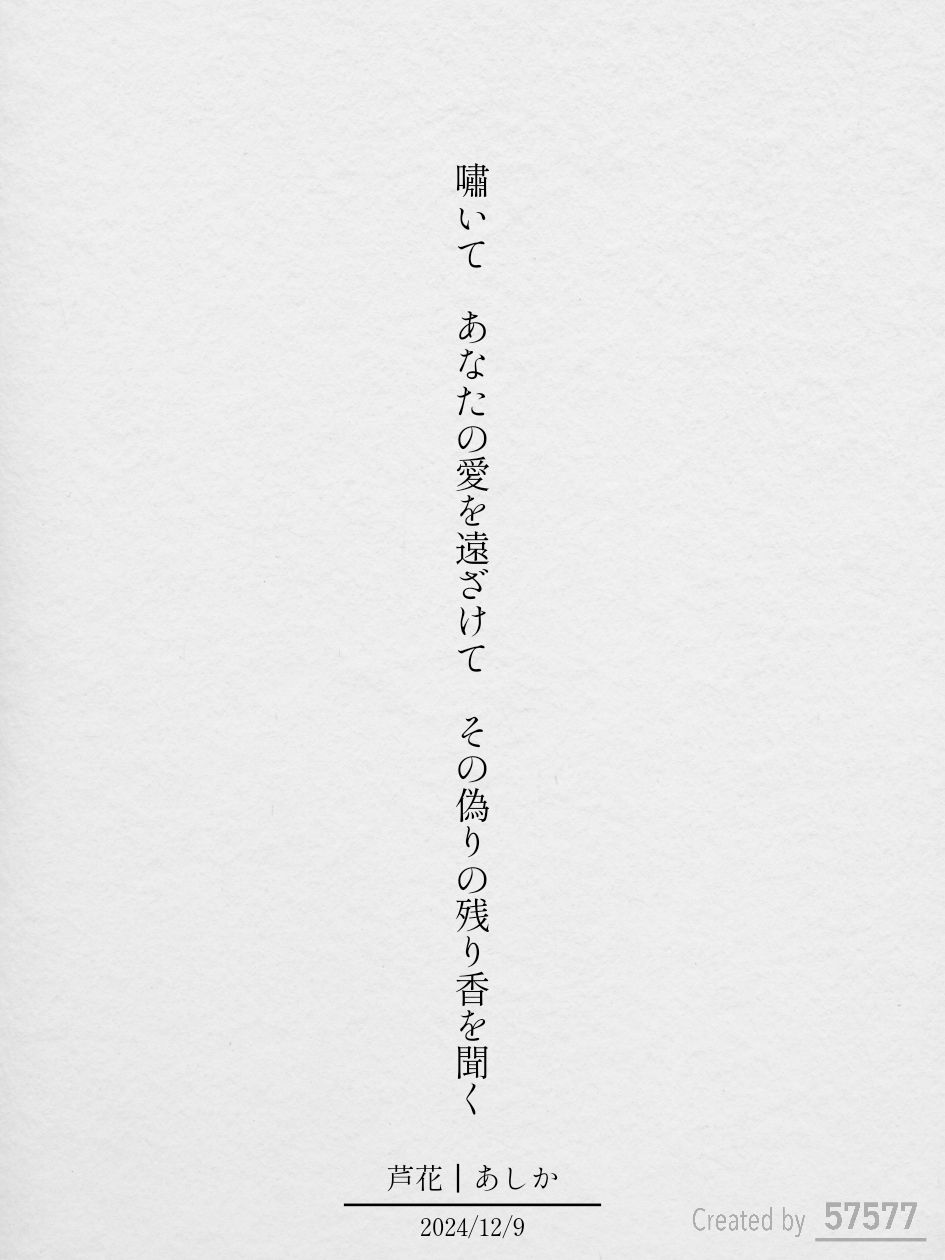 嘯いて　あなたの愛を遠ざけて　その偽りの残り香を聞く
芦花｜あしか
2024/12/9
Created by 57577